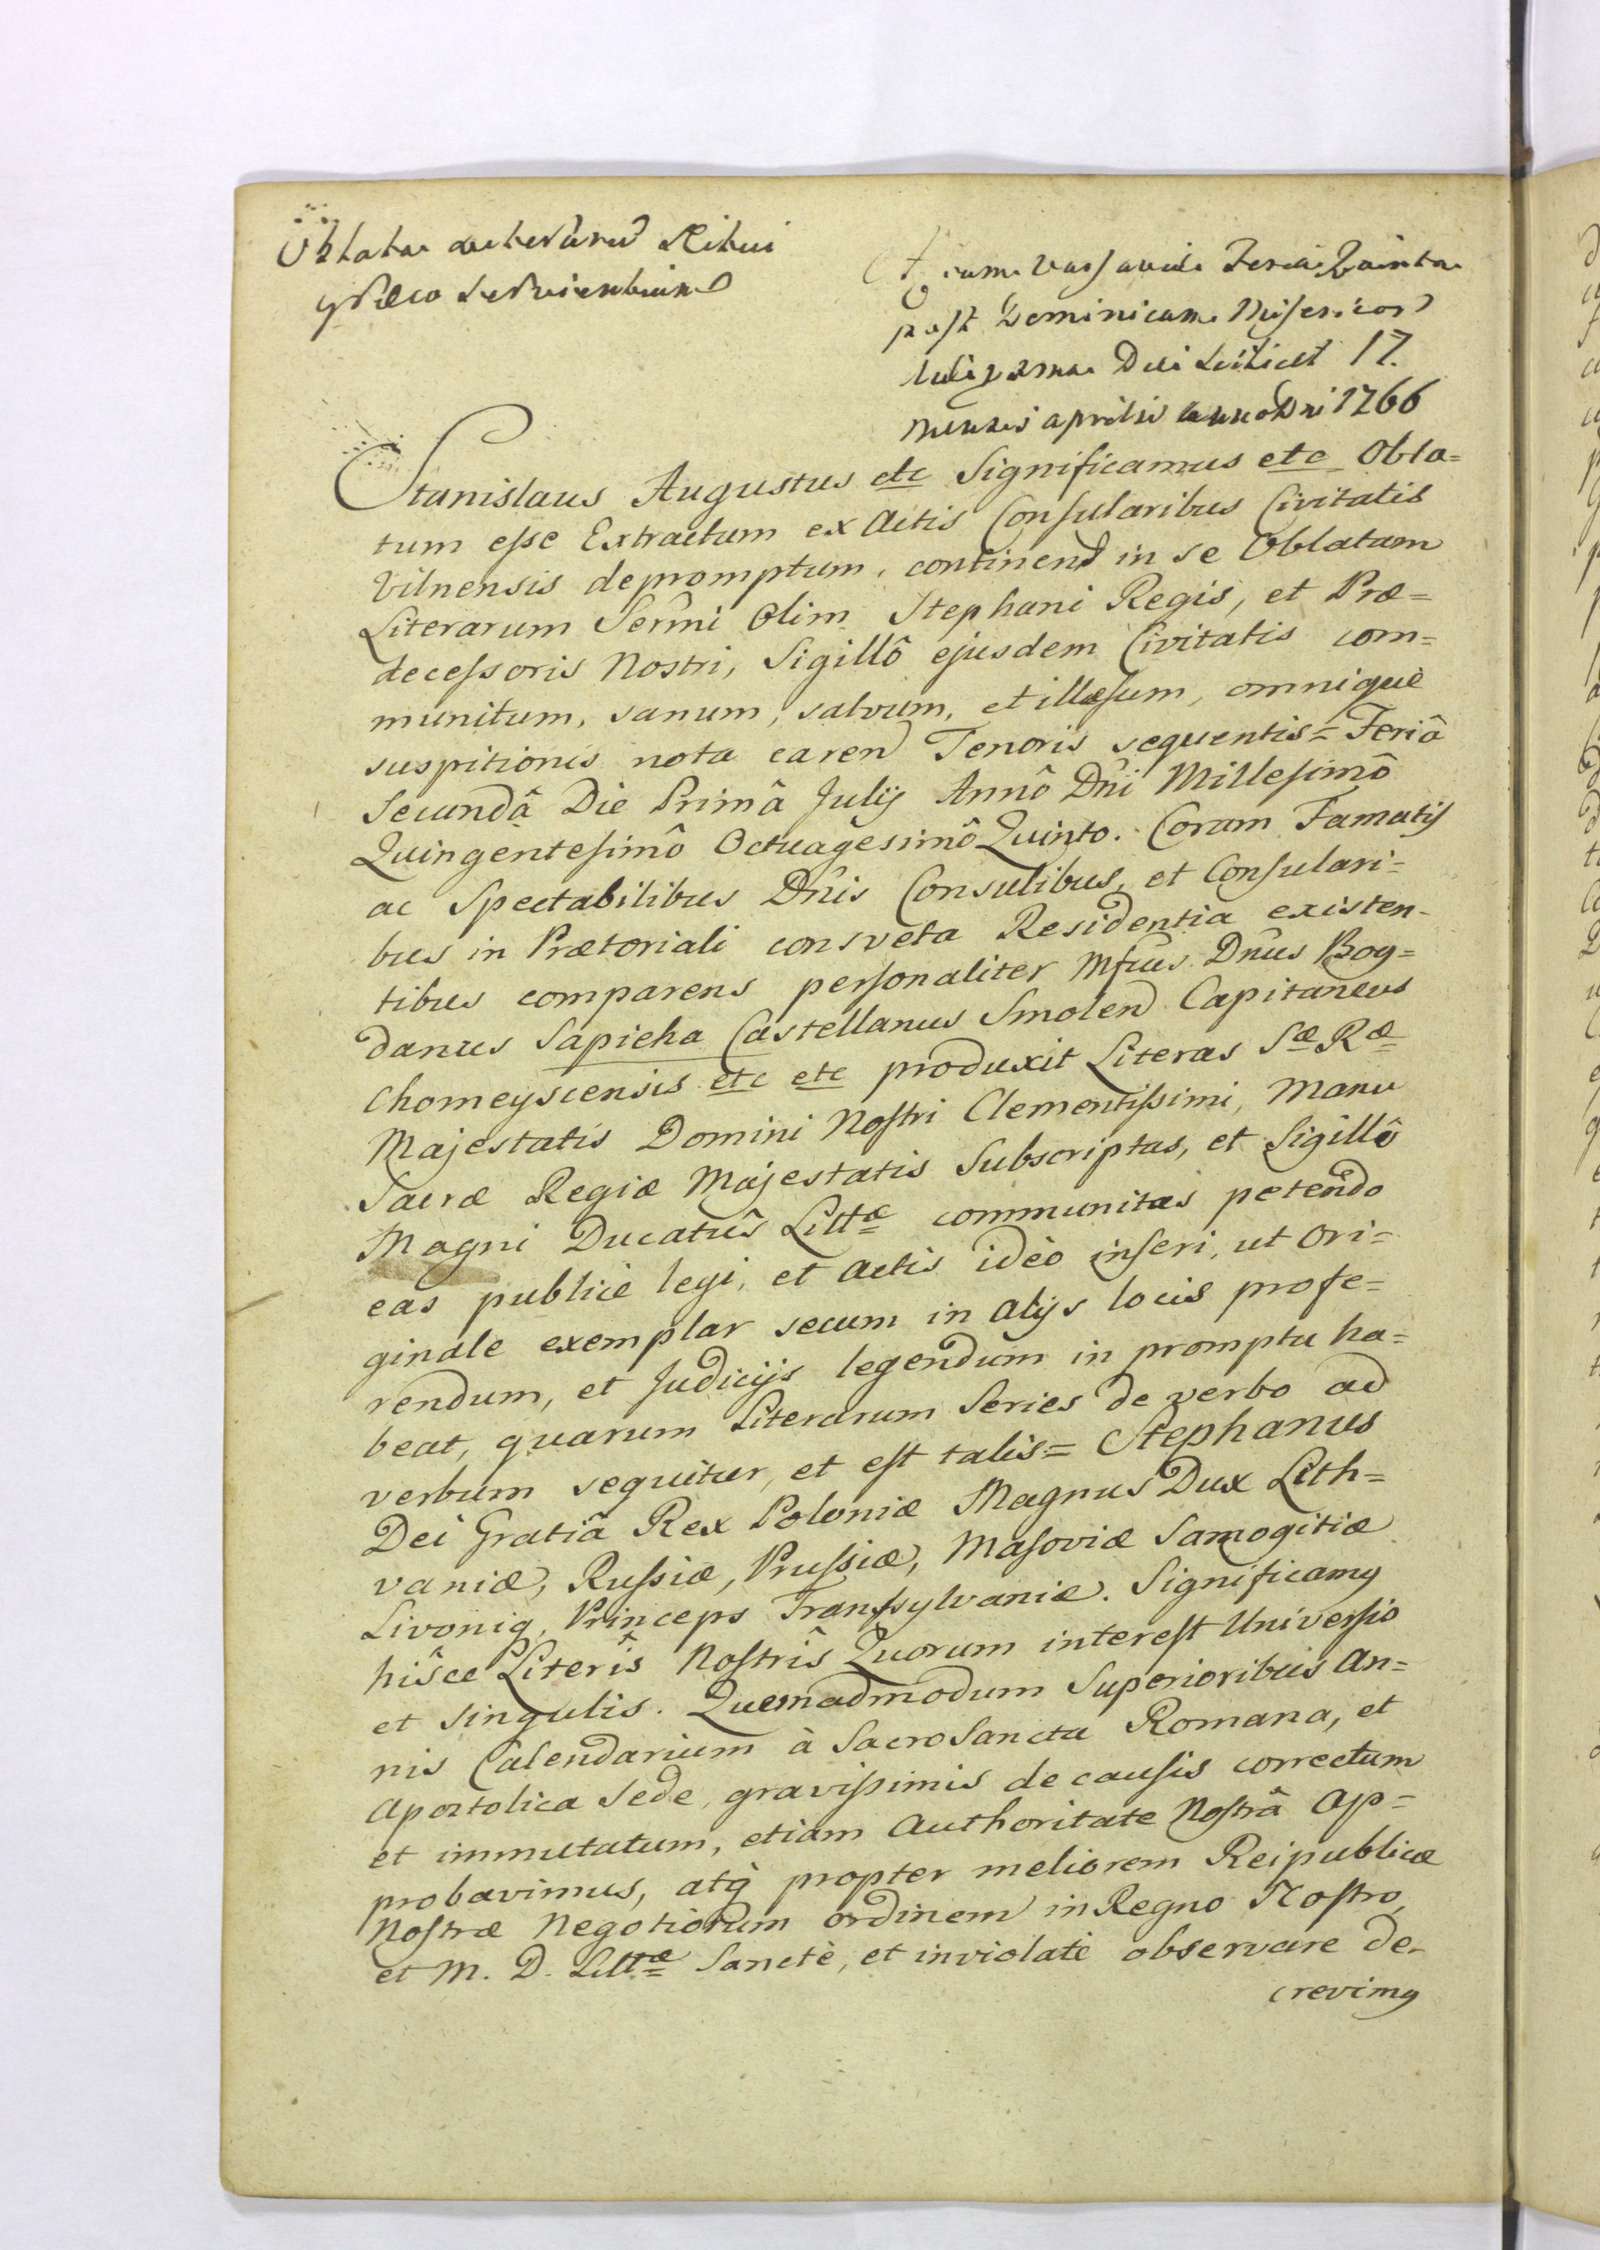 Oblata literarum Ritui
græco servientium
Actum Varsaviæ Feria Quinta
post Dominicam Misericor
proxima Die scilicet 17.
mensis aprilis anno Dni 1766
Stanislaus Augustus etc Significamus etc Obla=
tum esse Extractum ex Actis Consularibus Civitatis
Vilnensis depromptum, continend in se Oblatam
Literarum Sermi Olim Stephani Regis, et Præ=
decessoris Nostri, Sigillô ejusdem Civitatis com=
munitum, sanum, salvum, et illæsum, omniquè
suspitionis nota caren Tenoris sequentis= Feriâ
Secundâ Die Primâ Julij Annô Dni Millesimô
Quingentesimô Octuagesimô Quinto. Coram Famatis
ac Spectabilibus Dnis Consulibus, et Consulari=
bus in Prætoriali consveta Residentia existen-
tibus comparens personaliter Mfcus Dnus Bog=
danus Sapieha Castellanus Smolen Capitaneus
Chomeyscensis etc etc produxit Literas Sæ Ræ
Majestatis Domini Nostri Clementissimi, Manu
Sacræ Regiæ Majestatis Subscriptas, et Sigillô
Magni Ducatûs Littæ communitas petendo
eas publicè legi, et Actis ideò inseri, ut Ori=
ginale exemplar secum in alijs locis profe=
rendum, et Judicijs legendum in promptu ha=
beat, quarum Literarum Series de verbo ad
verbum sequitur, et est talis= Stephanus
Dei Gratiâ Rex Poloniæ Magnus Dux Lith=
vaniæ, Russiæ, Prussiæ, Masoviæ Samogitiæ
Livoniæ, Princeps Transsylvaniæ. Significamus
hisce Literîs Nostrîs Quorum interest Universis
et Singulis. Quemadmodum Superioribus An=
nis Calendarium à Sacro Sancta Romana, et
Apostolica Sede, gravissimis de causis correctum
et immutatum, etiam Authoritate Nostrâ Ap=
probavimus, atq propter meliorem Reipublicæ
Nostræ Negotiorum ordinem in Regno Nostro,
et M. D. Littæ Sanctè, et inviolatè observare de-
crevimus